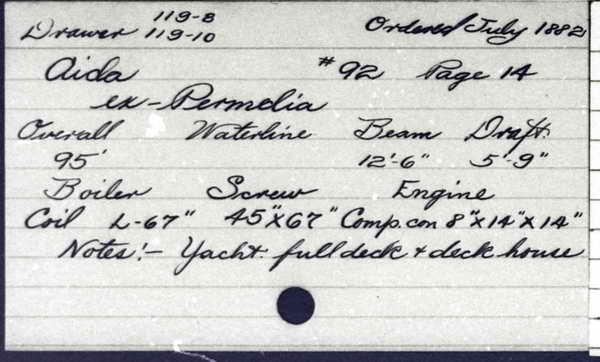 119-8
Drawer 119-10 Ordered July 1882
Aida #92 Page 14
ex-Permelia
Overall Waterline Beam Draft
95' 12'-6" 5'-9"
Boiler Screw Engine
Coil L-67" 45"x67" Comp. con 8"x14"x14"
Notes:- Yacht. full deck + deck house